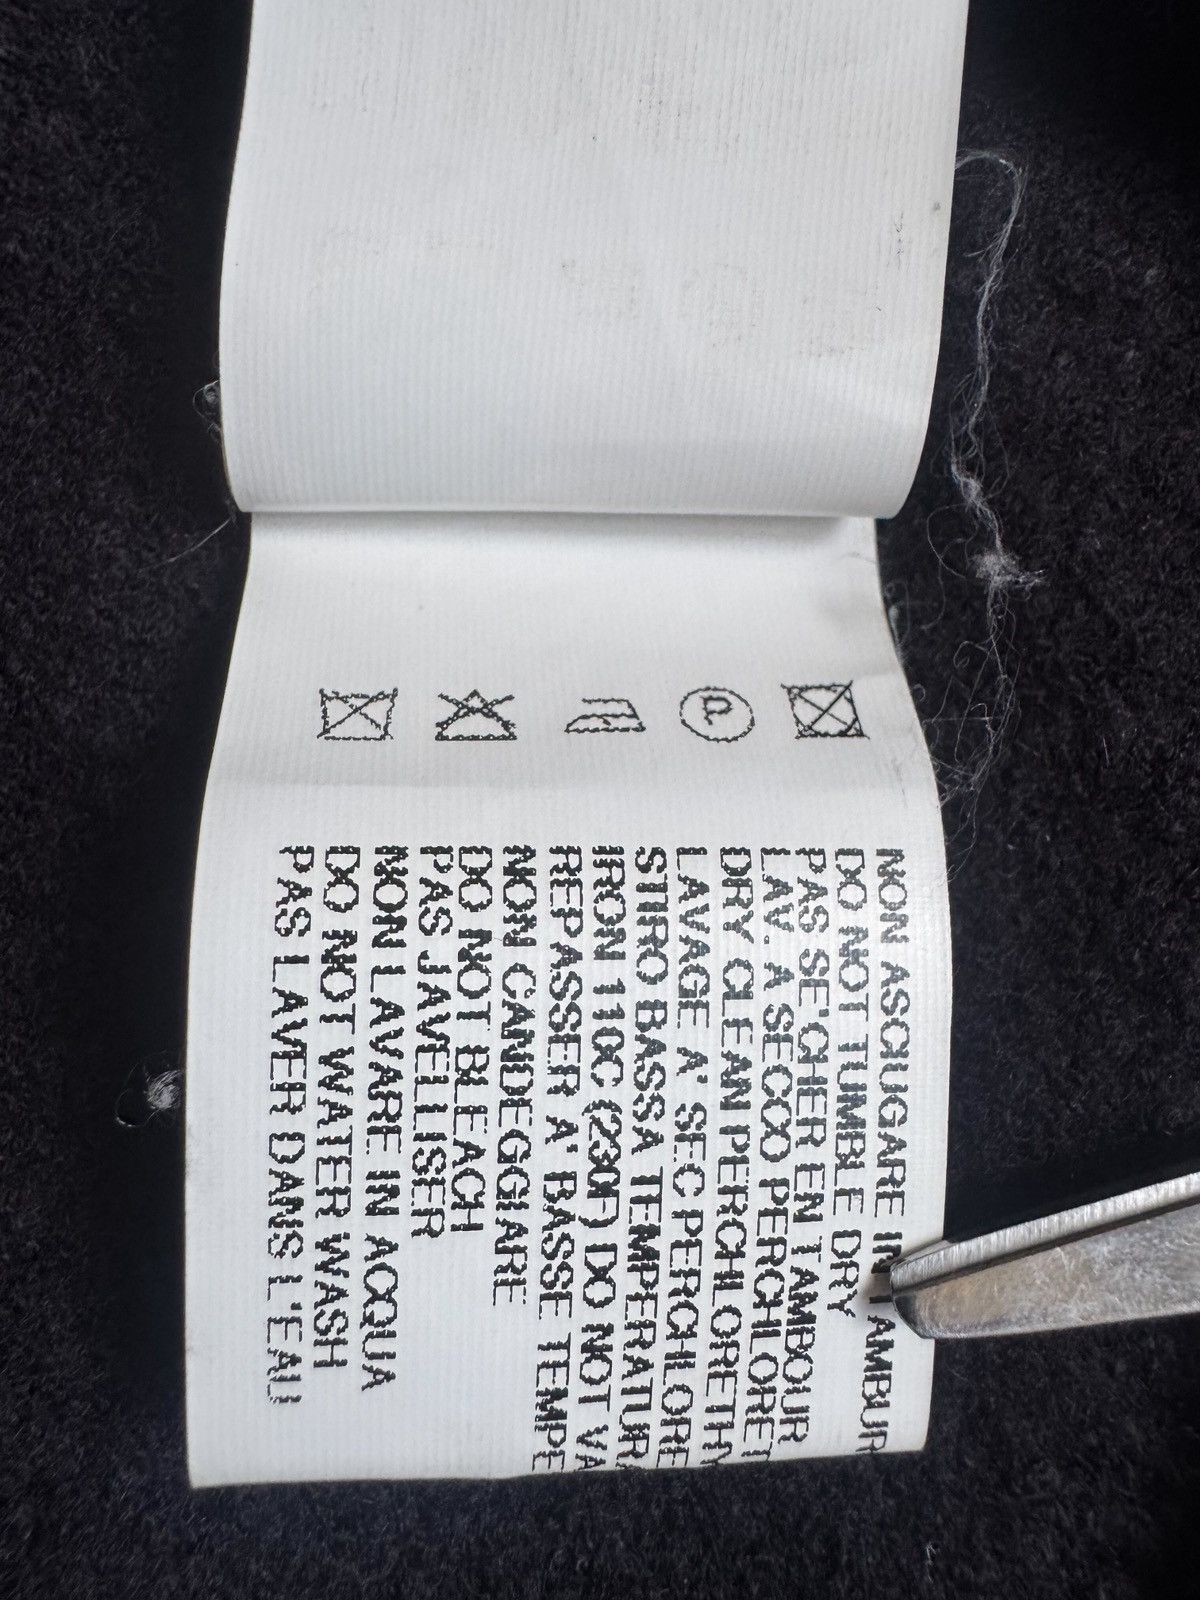 P
NON ASCIUGARE IN TAMBUR
DO NOT TUMBLE DRY
PAS SE'CHER EN TAMBOUR
LAV. A SECCO PERCHLORET
DRY CLEAN PERCHLORETHY
LAVAGE A' SEC PERCHLORE
STIRO BASSA TEMPERATURA
IRON 110C (230F) DO NOT VA
REPASSER A' BASSE TEMPE
NON CANDEGGIARE
DO NOT BLEACH
PAS JAVELLISER
NON LAVARE IN ACQUA
DO NOT WATER WASH
PAS LAVER DANS L'EAU